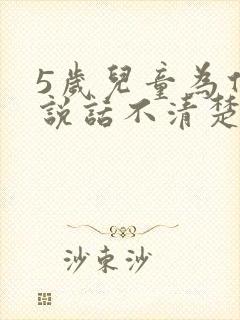 5歲兒童為什
說話不清楚
沙束沙